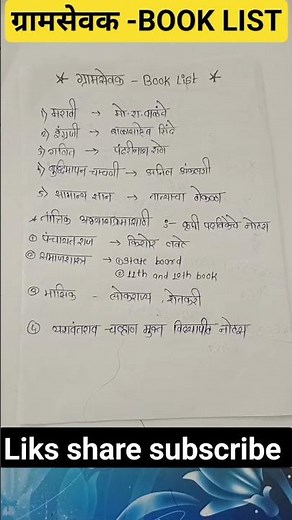 ग्रामसेवक -BOOK LIST
* ग्रामसेवक - Book List *
1) मराठी → मो. रा. वाळंबे
2) इंग्रजी → बाळासाहेब शिंदे
3) गणित → पंढरीनाथ राणे
4) बुद्धिमापन चाचणी → अनिल अंकलगी
5) सामान्य ज्ञान → तात्याचा ठोकळा
* तांत्रिक अभ्यासक्रमासाठी :- कृषी पदविकेचे नोट्स
① पंचायत राज → किशोर लवटे
② समाजशास्त्र → ① State board
② 11th and 12th book
③ मासिक - लोकराज्य, शेतकरी
④ यशवंतराव चव्हाण मुक्त विद्यापीठ नोट्स
Liks share subscribe